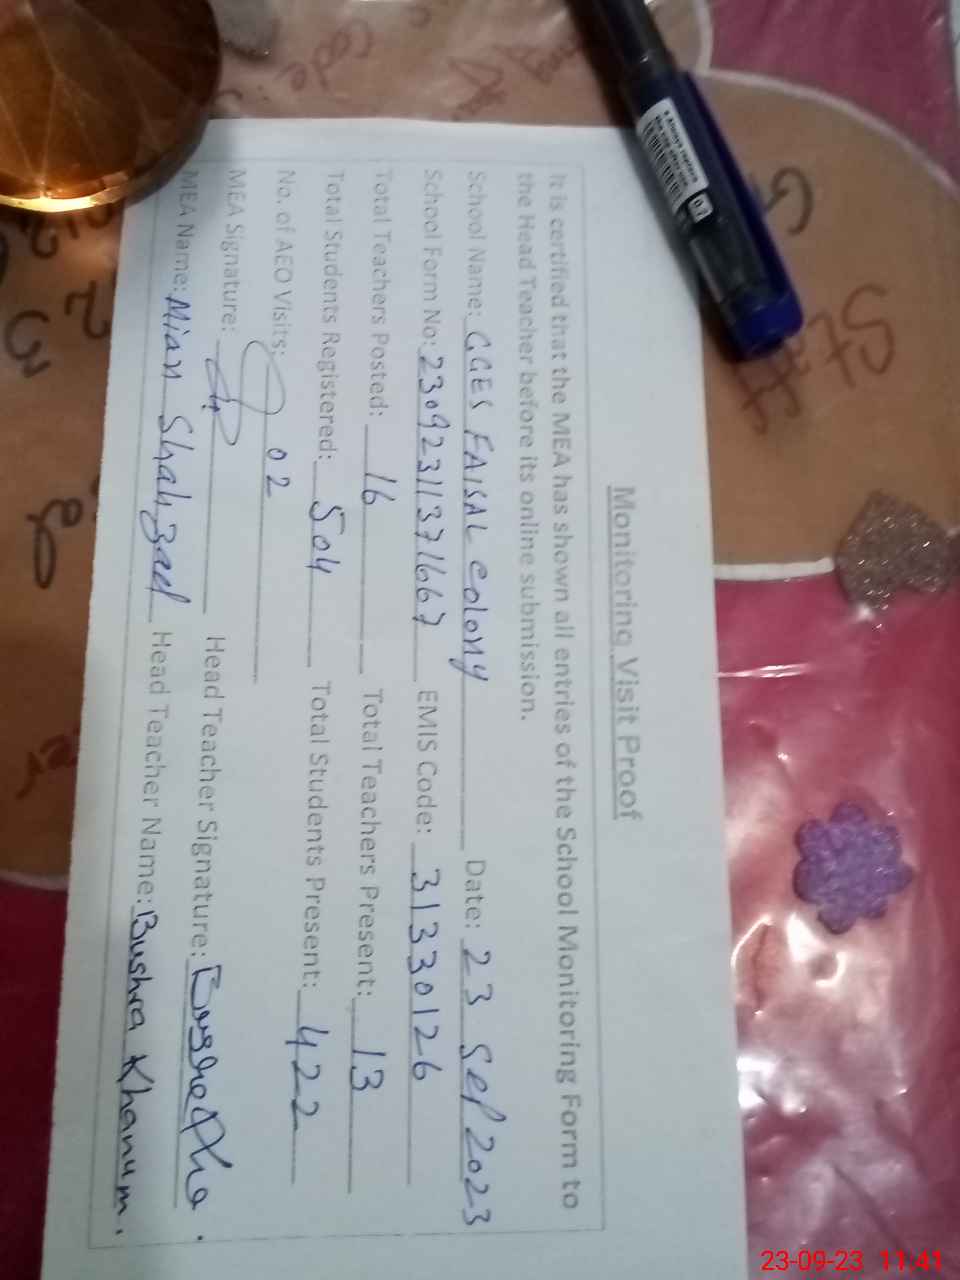 Monitoring Visit Proof
It is certified that the MEA has shown all entries of the School Monitoring Form to
the Head Teacher before its online submission.
School Name: GGES FAISAL colony Date: 23 Sep 2023
School Form No: 23092311371667 EMIS Code: 31330126
Total Teachers Posted: 16 Total Teachers Present: 13
Total Students Registered: 504 Total Students Present: 422
No. of AEO Visits: 02
MEA Signature: Head Teacher Signature:
MEA Name: Mian Shahzad Head Teacher Name: Bushra Khanum.
Staff
0.7
23-09-23 11:41